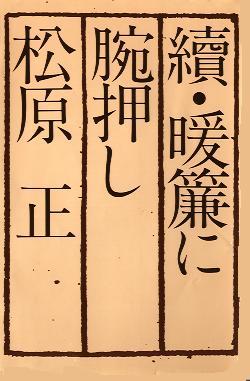 續・暖簾に
腕押し
松原 正